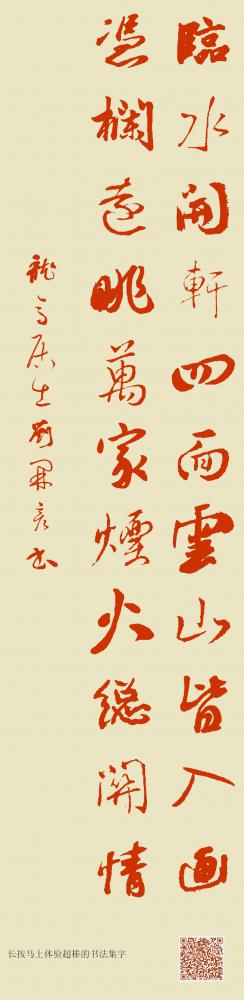 臨水開軒四面雲山皆入画
憑欄遠眺萬家煙火總關情
龍居士劉彦书
长按马上体验超棒的书法集字